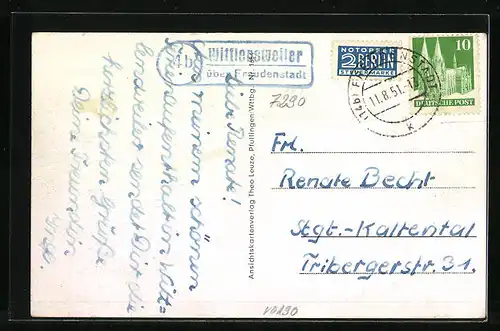 14b
Wittlensweiler
über Freudenstadt
NOTOPFER
2 BERLIN
STEUERMARKE
10
DEUTSCHE POST
11.8.51.-1
(14b)
k
7290
Liebe Renate!
Aus meinem schönen
Ferienaufenthalt in Witt-
lensweiler sendet Dir die
herzlichsten Grüße
Deine Freundin
Ansichtskartenverlag Theo Leuze, Pfullingen-Württbg. Nr.
Frl.
Renate Becht
Stgt.-Kaltental
Tribergerstr. 31.
V0190